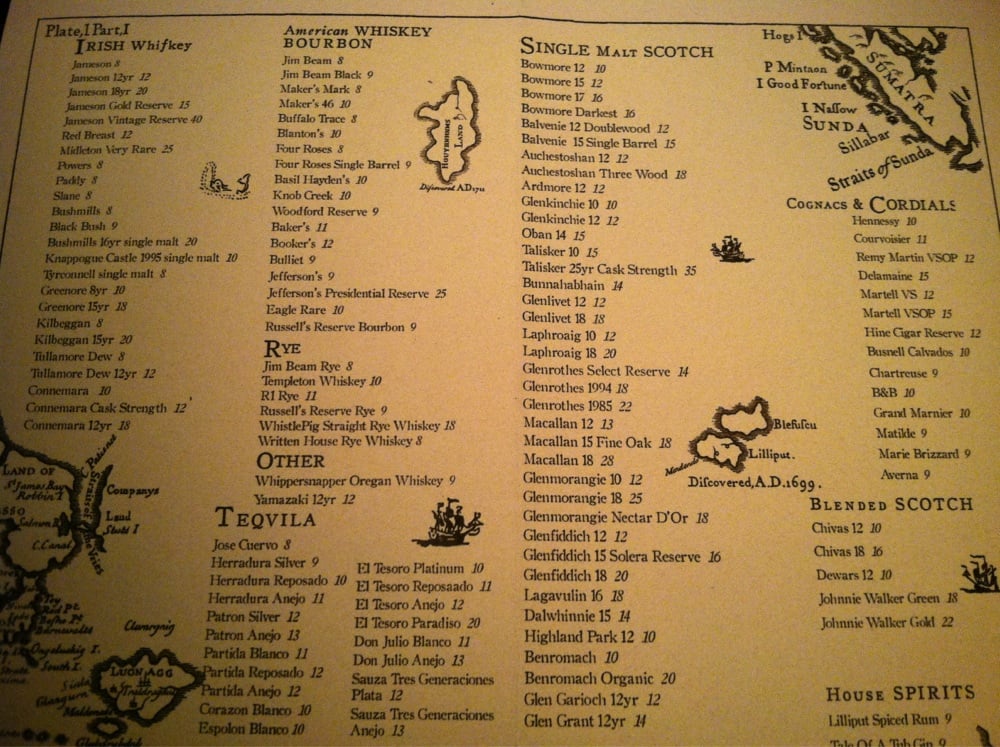 Plate,I Part,I
IRISH Whifkey
Jameson 8
Jameson 12yr 12
Jameson 18yr 20
Jameson Gold Reserve 15
Jameson Vintage Reserve 40
Red Breast 12
Midleton Very Rare 25
Powers 8
Paddy 8
Slane 8
Bushmills 8
Black Bush 9
Bushmills 16yr single malt 20
Knappogue Castle 1995 single malt 10
Tyrconnell single malt 8
Greenore 8yr 10
Greenore 15yr 18
Kilbeggan 8
Kilbeggan 15yr 20
Tullamore Dew 8
Tullamore Dew 12yr 12
Connemara 10
Connemara Cask Strength 12
Connemara 12yr 18
American WHISKEY
BOURBON
Jim Beam 8
Jim Beam Black 9
Maker's Mark 8
Maker's 46 10
Buffalo Trace 8
Blanton's 10
Four Roses 8
Four Roses Single Barrel 9
Basil Hayden's 10
Knob Creek 10
Woodford Reserve 9
Baker's 11
Booker's 12
Bulliet 9
Jefferson's 9
Jefferson's Presidential Reserve 25
Eagle Rare 10
Russell's Reserve Bourbon 9
RYE
Jim Beam Rye 8
Templeton Whiskey 10
R1 Rye 11
Russell's Reserve Rye 9
WhistlePig Straight Rye Whiskey 18
Written House Rye Whiskey 8
OTHER
Whippersnapper Oregan Whiskey 9
Yamazaki 12yr 12
TEQVILA
Jose Cuervo 8
Herradura Silver 9
Herradura Reposado 10
Herradura Anejo 11
Patron Silver 12
Patron Anejo 13
Partida Blanco 11
Partida Reposado 12
Partida Anejo 12
Corazon Blanco 10
Espolon Blanco 10
El Tesoro Platinum 10
El Tesoro Reposaado 11
El Tesoro Anejo 12
El Tesoro Paradiso 20
Don Julio Blanco 11
Don Julio Anejo 13
Sauza Tres Generaciones
Plata 12
Sauza Tres Generaciones
Anejo 13
SINGLE MALT SCOTCH
Bowmore 12 10
Bowmore 15 12
Bowmore 17 16
Bowmore Darkest 16
Balvenie 12 Doublewood 12
Balvenie 15 Single Barrel 15
Auchestoshan 12 12
Auchestoshan Three Wood 18
Ardmore 12 12
Glenkinchie 10 10
Glenkinchie 12 12
Oban 14 15
Talisker 10 15
Talisker 25yr Cask Strength 35
Bunnahabhain 14
Glenlivet 12 12
Glenlivet 18 18
Laphroaig 10 12
Laphroaig 18 20
Glenrothes Select Reserve 14
Glenrothes 1994 18
Glenrothes 1985 22
Macallan 12 13
Macallan 15 Fine Oak 18
Macallan 18 28
Glenmorangie 10 12
Glenmorangie 18 25
Glenmorangie Nectar D'Or 18
Glenfiddich 12 12
Glenfiddich 15 Solera Reserve 16
Glenfiddich 18 20
Lagavulin 16 18
Dalwhinnie 15 14
Highland Park 12 10
Benromach 10
Benromach Organic 20
Glen Garioch 12yr 12
Glen Grant 12yr 14
COGNACS & CORDIALS
Hennessy 10
Courvoisier 11
Remy Martin VSOP 12
Delamaine 15
Martell VS 12
Martell VSOP 15
Hine Cigar Reserve 12
Busnell Calvados 10
Chartreuse 9
B&B 10
Grand Marnier 10
Matilde 9
Marie Brizzard 9
Averna 9
BLENDED SCOTCH
Chivas 12 10
Chivas 18 16
Dewars 12 10
Johnnie Walker Green 18
Johnnie Walker Gold 22
HOUSE SPIRITS
Lilliput Spiced Rum 9
Tale Of A Tub Gin 9
Hogs I
SUMATRA
P Mintaon
I Good Fortune
I Naffow
SUNDA
Sillabar
Straits of Sunda
HOUYHNHNMS
LAND
Blefufcu
Lilliput.
Difcovered, A.D.1699.
LAND OF
St James Bay
Robbin I
Companys
Land
C.Canal
South I.
Clumegnig
LUGNAGG